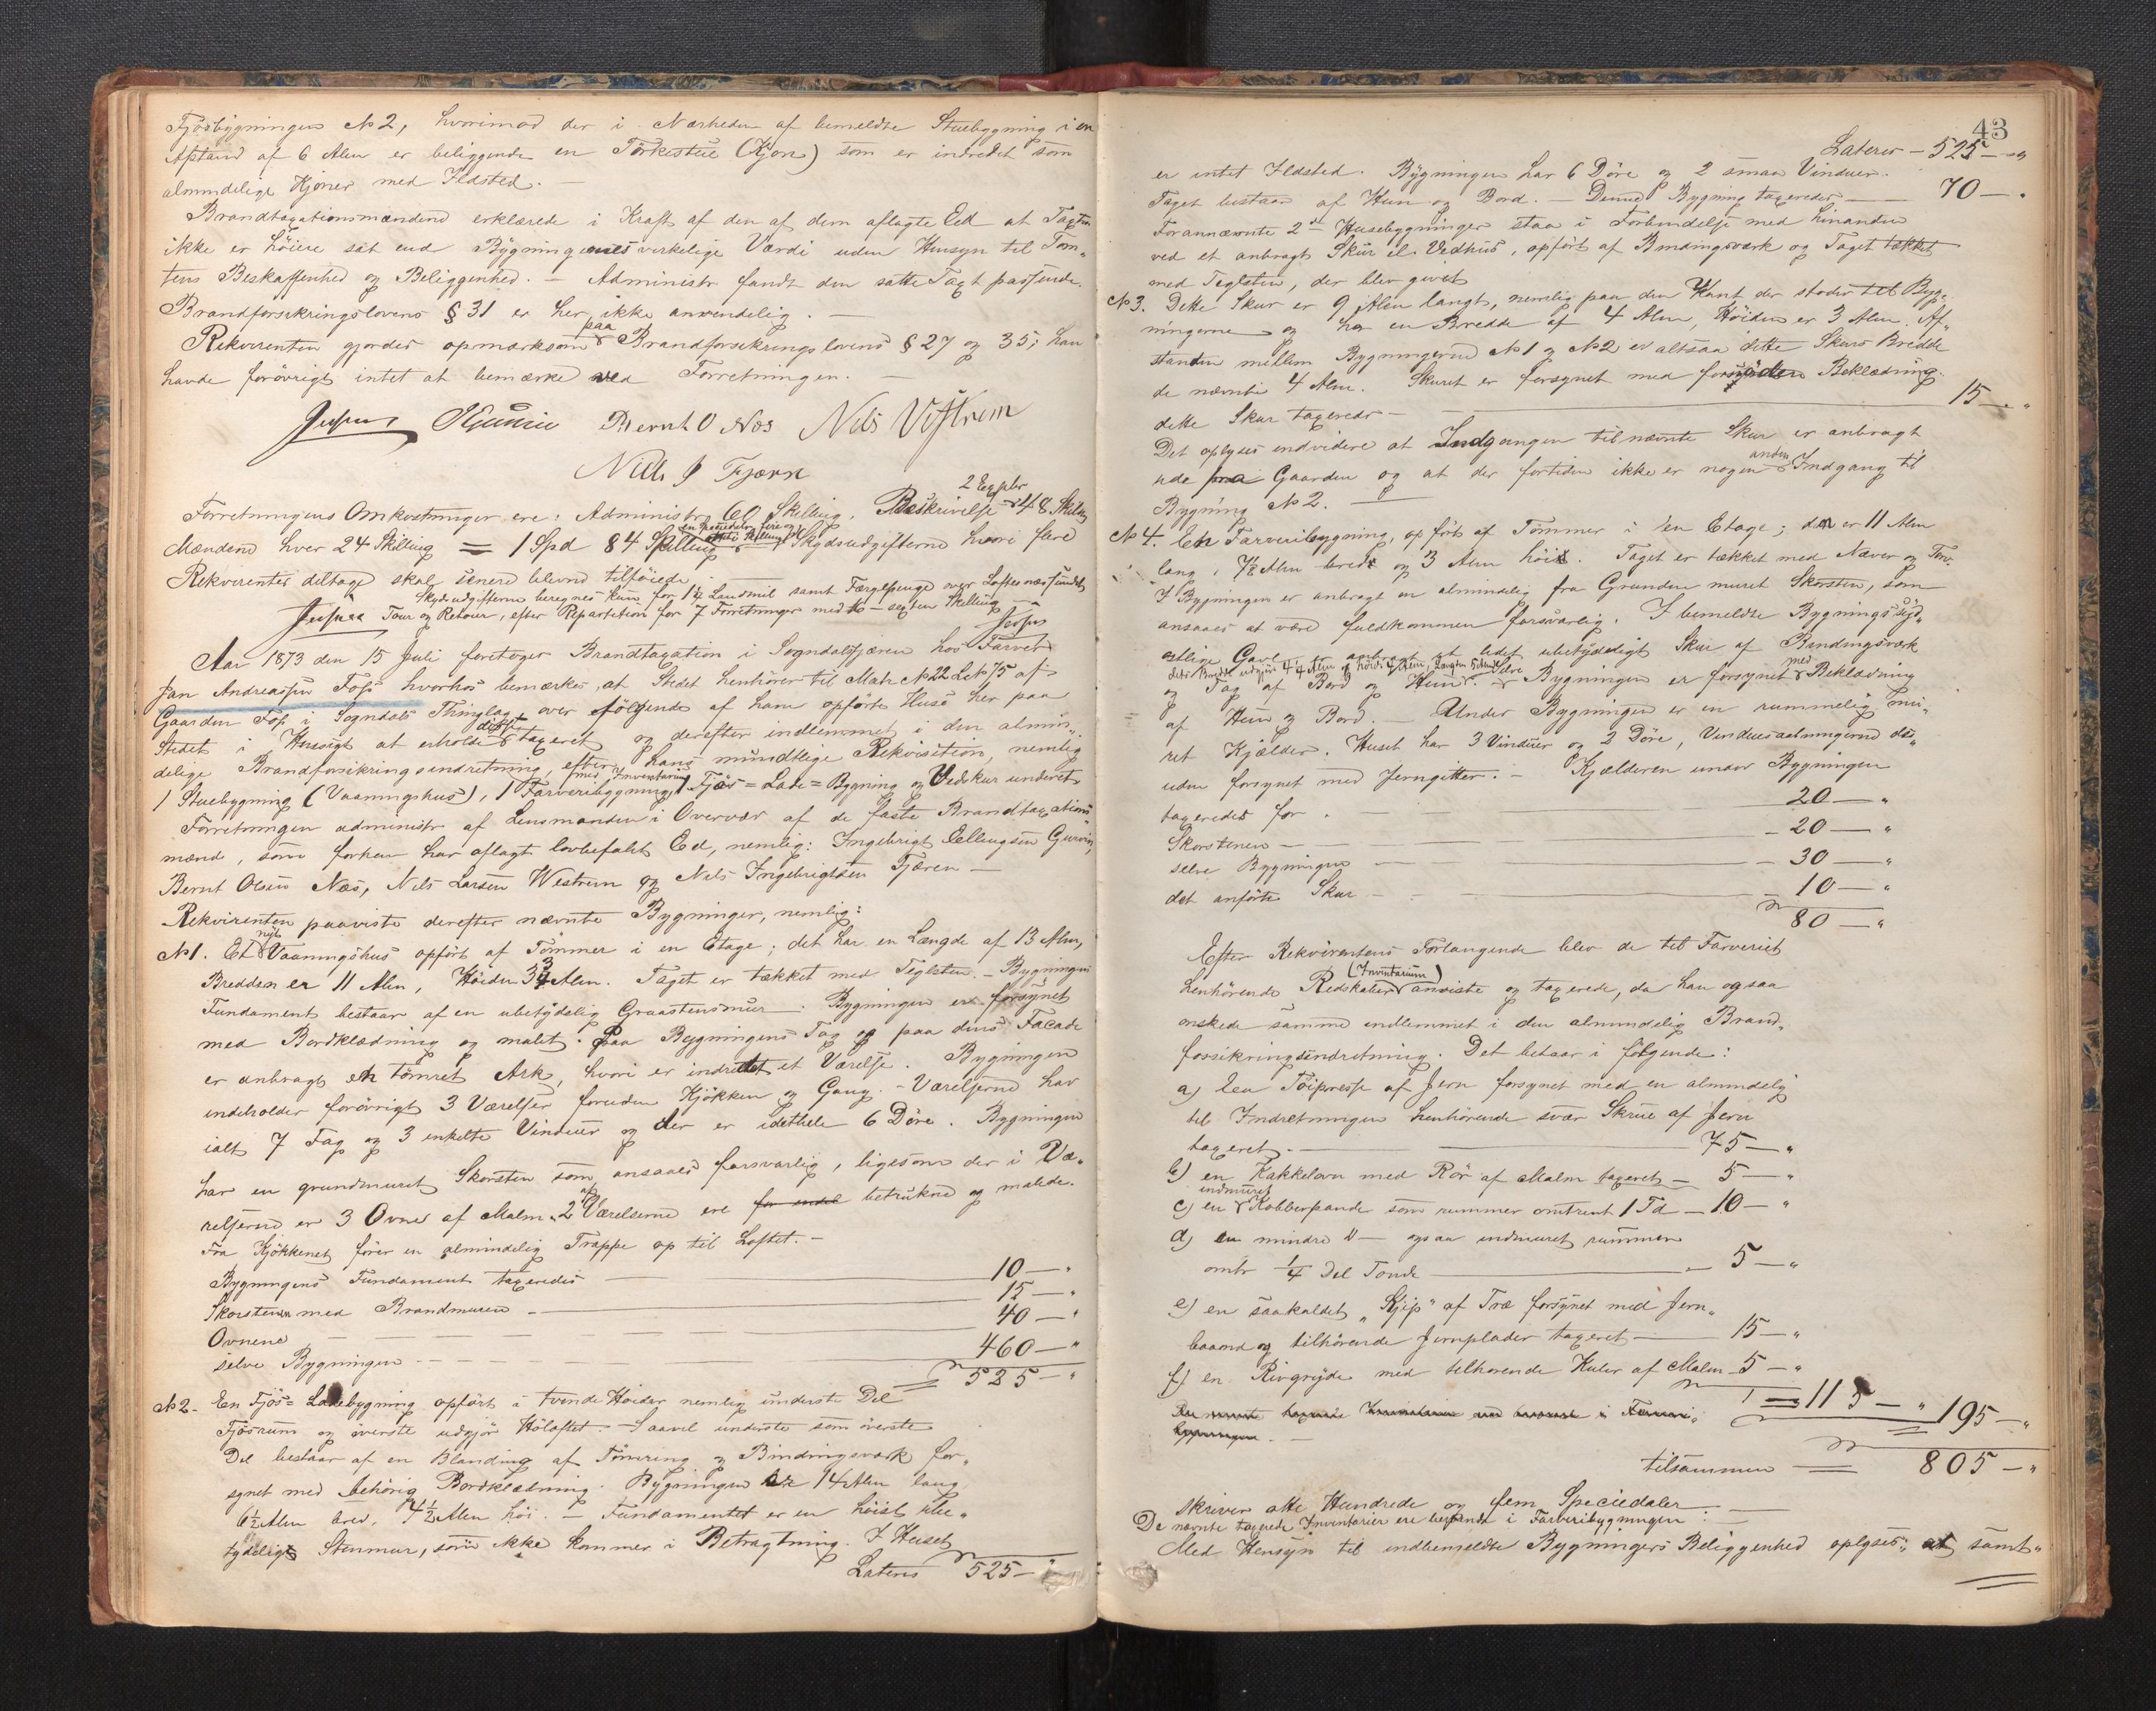 Fjösbygningen No 2, hvorimod der i Nærheden af bemeldte Stuebygning i en
Afstand af 6 Alen er beliggende en Törkestue (Kjone) som er indredet som
almindelige Kjoner med Ildsted. —
Brandtaxationsmændene erklærede i Kraft af den af dem aflagte Eed at Taxten
ikke er höiere sat end Bygningernes virkelige Værdi uden Hensyn til Tom„
tens Beskaffenhed og Beliggenhed. — Administr fandt den satte Taxt passende.
Brandforsikringslovens § 31 er her ikke anvendelig. —
Rekvirenten gjordes opmærksom paa Brandforsikringslovens § 27 og 35; han
havde forövrigt intet at bemærke ved Forretningen. —
Bernt O Næs Nils Vestrem
Nils J Fjærn
Forretningens Omkostninger ere: Administr 60 Skilling. Beskrivelse 2 Explr 48 Skilling
Mændene hver 24 Skilling = 1 Spd 84 Skilling Skydsudgifterne hvori flere
Rekvirenter deltage skal senere blevne tilföiede
Skydsudgifterne beregnes kun for 1½ Landmil samt Færgepenge over Loftesnæssundet
Tour og Retour, efter Repartition for 7 Forretninger med 16 — sexten Skilling —
Aar 1873 den 15 Juli foretoges Brandtaxation i Sogndalsfjæren hos Farver
Jan Andreassen Foss hvorhos bemærkes, at Stedet henhörer til Matr No 22 Lb No 75 af
Gaarden Foss i Sogndals Thinglag, over fölgende af ham opförte Huse her paa
Stedet i Hensigt at erholde disse taxeret og derefter indlemmet i den almin„
delige Brandforsikringsindretning, efter hans mundtlige Rekvisition, nemlig
1 Stuebygning (Vaaningshus), 1 Farveribygning med Inventarium, 1 Fjös= Lade= Bygning og Vedskur underet
Forretningen administr af Lensmanden i Overvær af de faste Brandtaxations„
mænd, som forhen har aflagt lovbefalet Ed, nemlig: Ingebrigt Ellingsen Gurvin,
Bernt Olsen Næs, Nils Larsen Westrem og Nils Ingebrigtsen Fjæren —
Rekvirenten paaviste derefter nævnte Bygninger, nemlig:
No 1. Et nyt Vaaningshus opfört af Tömmer i en Etage; det har en Længde af 13 Alen,
Bredden er 11 Alen, Höiden 3¾ Alen. Taget er tækket med Teglsten. — Bygningens
Fundament bestaar af en ubetydelig Graastensmur. Bygningen er forsynet
med Bordklædning og malet. Paa Bygningens Tag og paa dens Facade
er anbragt en tömret Ark, hvori er indredet et Værelse. Bygningen
indeholder forövrigt 3 Værelser foruden Kjökken og Gang. — Værelserne har
ialt 7 Fag og 3 enkelte Vinduer og der er idethele 6 Döre. Bygningen
har en grundmuret Skorsten som ansaaes forsvarlig, ligesom der i Væ„
relserne er 3 Ovne af Malm. 2 af Værelserne ere for endel betrukne og malede.
Fra Kjökkenet förer en almindelig Trappe op til Loftet. —
Bygningens Fundament taxeredes — 10 — „
Skorstenen med Brandmuren — 15 — „
Ovnene — 40 — „
selve Bygningen — 460 — „
525 — „
No 2. En Fjös= Ladebygning opfört i tvende Höider nemlig underste Del
Fjösrum og överste udgjör Höloftet. — Saavel underste som överste
Del bestaar af en Blanding af Tömring og Bindingsværk for„
synet med behörig Bordklædning. Bygningen er 14 Alen lang,
6½ Alen bred, 4½ Alen höi. — Fundamentet er en höist ube„
tydelig Stenmur, som ikke kommer i Betragtning. I Huset
Lateris 525 — „
43
Lateris — 525 — „
er intet Ildsted. Bygningen har 6 Döre og 2 smaa Vinduer.
Taget bestaar af Hun og Bord. — Denne Bygning taxeredes — 70 — „
Forannævnte 2de Husebygninger staa i Forbindelse med hinanden
ved et anbragt Skur el. Vedhus, opfört af Bindingsværk og Taget tækket
med Teglsten, der blev givet
No 3. Dette Skur er 9 Alen langt, nemlig paa den Kant der stöder til Byg„
ningerne og har en Bredde af 4 Alen, Höiden er 3 Alen. Af„
standen mellem Bygningerne No 1 og No 2 er altsaa dette Skurs Bredde
de nævnte 4 Alen. Skuret er forsynet med fornöden Beklædning.
dette Skur taxeredes — 15 — „
Det oplyses endvidere at Indgangen til nævnte Skur er anbragt
ude fra Gaarden og at der fortiden ikke er nogen anden Indgang til
Bygning No 2. —
No 4. En Farveribygning, opfört af Tömmer i en Etage; den er 11 Alen
lang, 7½ Alen bred og 3 Alen höi. Taget er tækket med Næver og Torv.
I Bygningen er anbragt en almindelig fra Grunden muret Skorsten, som
ansaaes at være fuldkommen forsvarlig. I bemeldte Bygnings syd„
östlige Gavl er anbragt et lidet ubetydeligt Skur af Bindingsværk
dets Bredde udgjör 4¼ Alen og höide 4 Alen, Længden 5 Alen
og Tag af Bord og Hun. — Selve Bygningen er forsynet med Beklædning
af Hun og Bord. — Under Bygningen er en rummelig mu„
ret Kjælder. Huset har 3 Vinduer og 2 Döre, Vinduesaabningerne des„
uden forsynet med Jerngitter. — Kjælderen under Bygningen
taxeredes for — 20 — „
Skorstenen — 20 — „
selve Bygningen — 30 — „
det anförte Skur — 10 — „
80 — „
Efter Rekvirentens Forlangende blev de til Farveriet
henhörende Redskaber (Inventarium) anviste og taxerede, da han ogsaa
önskede samme indlemmet i den almindelig Brand„
forsikringsindretning. Det bestaar i fölgende:
a) en Töipresse af Jern forsynet med en almindelig
til Indretningen henhörende svær Skrue af Jern
taxeret. — 75 — „
b) en Kakkelovn med Rör af Malm taxeret — 5 — „
c) en indmuret Kobberpande som rummer omtrent 1 Td — 10 — „
d) en mindre D — ogsaa indmuret rummer
omtr ¼ Del Tönde — 5 — „
e) en saakaldet „Kjip" af Træ forsynet med Jern„
baand og tilhörende Jernplader taxeret — 15 — „
f) en Rivgryde med tilhörende Kuler af Malm 5 — „
= 115 — „ 195 — „
tilsammen — 805 — „
skriver otte Hundrede og fem Speciedaler. —
De nævnte taxerede Inventarier ere beroende i Farveribygningen. —
Med Hensyn til indbemeldte Bygningers Beliggenhed oplyses: at samt„